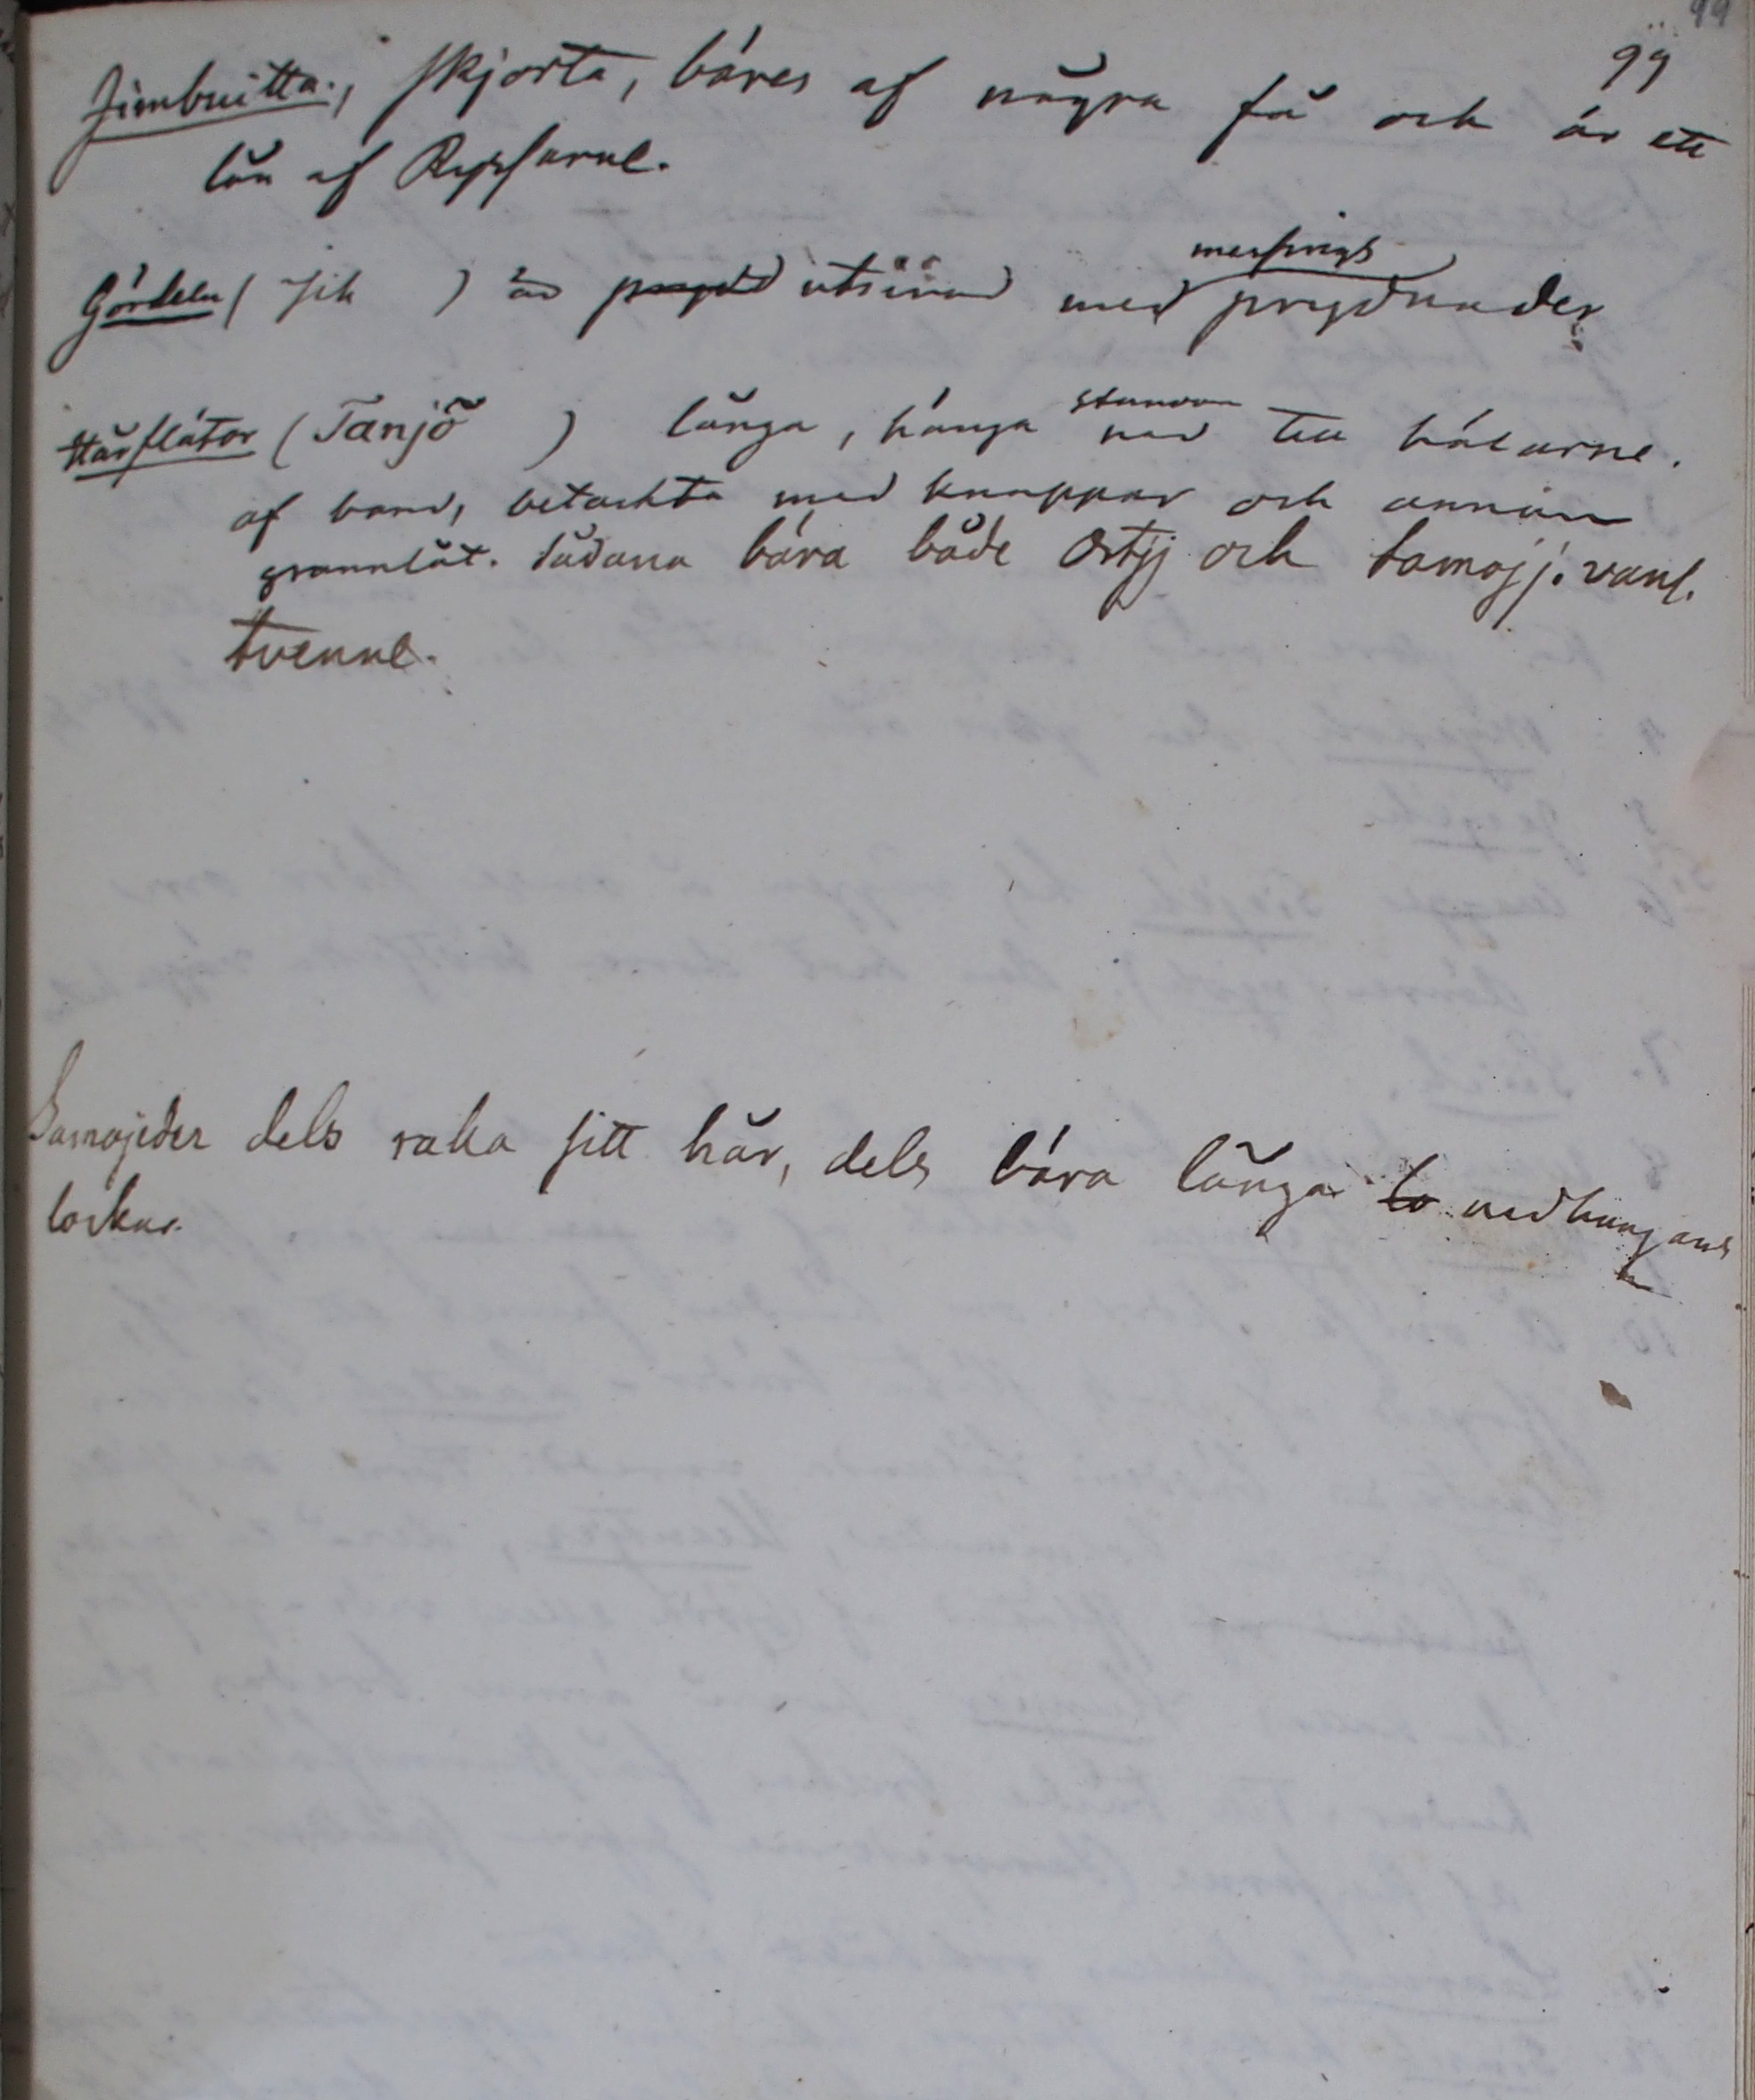 99
99
Jimbuitta., skjorta, bäres af några få och är ett
lån af Ryssarne.
messings
Gördeln ( Jih ) är prydd utsirad med prydnader
stundom
Hårflätor (Tanjõ ) långa, hänga ned till hälarne.
af band, betäckta med knappar och annan
grannlåt. Sådana bära både Ostj. och Samojj. vanl.
tvenne.
Samojeder dels raka sitt hår, dels bära långa lo nedhängande
lockar.